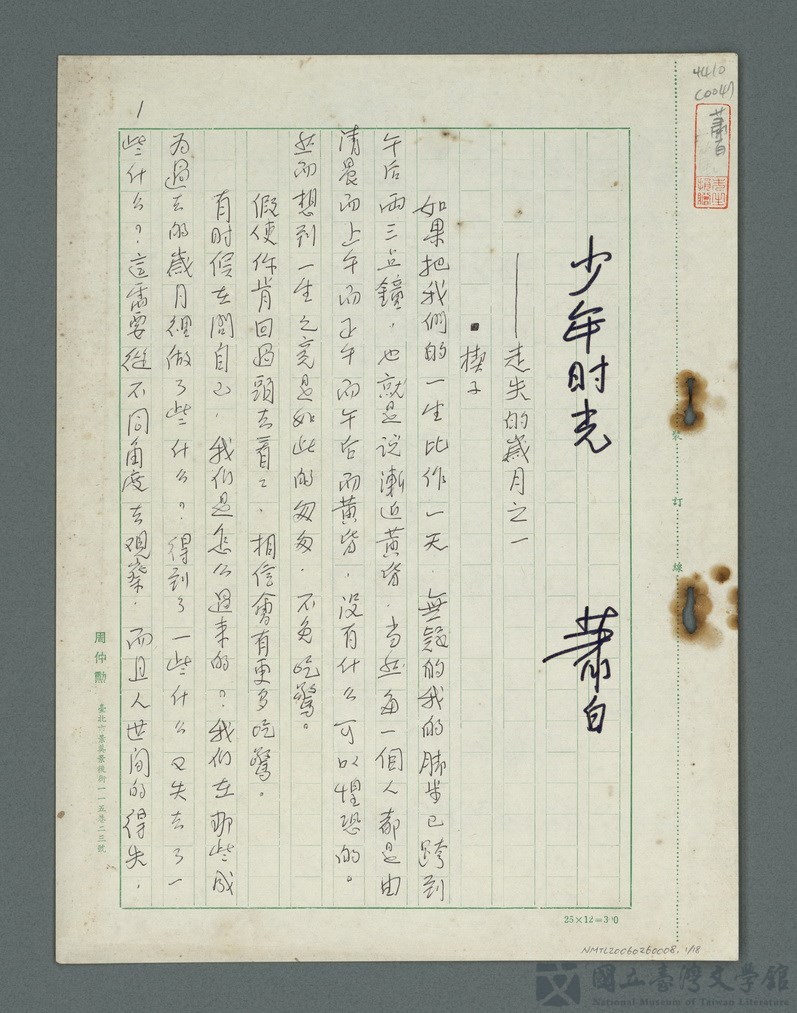 4410
蕭白
少年时光
蕭白
——走失的歲月之一
▪楔子
如果把我們的一生比作一天．無疑的我的腳步已跨到
午后兩三点鐘，也就是说漸近黃昏．当然每一個人都是由
清晨而上午而正午而午后而黃昏．没有什么可以惶恐的。
然而想到一生之竟是如此的匆匆．不免吃驚。
假使你肯回過頭去看看．相信會有更多吃驚．
有时候在問自己．我们是怎么過来的？我们在那些成
为過去的歲月裡做了些什么？得到了一些什么又失去了一
些什么？這需要從不同角度去观察．而且人世间的得失．
1
裝訂線
周仲勳
25×12=300
NMTL20060260008. 1/18
國立臺灣文學館
National Museum of Taiwan Literature